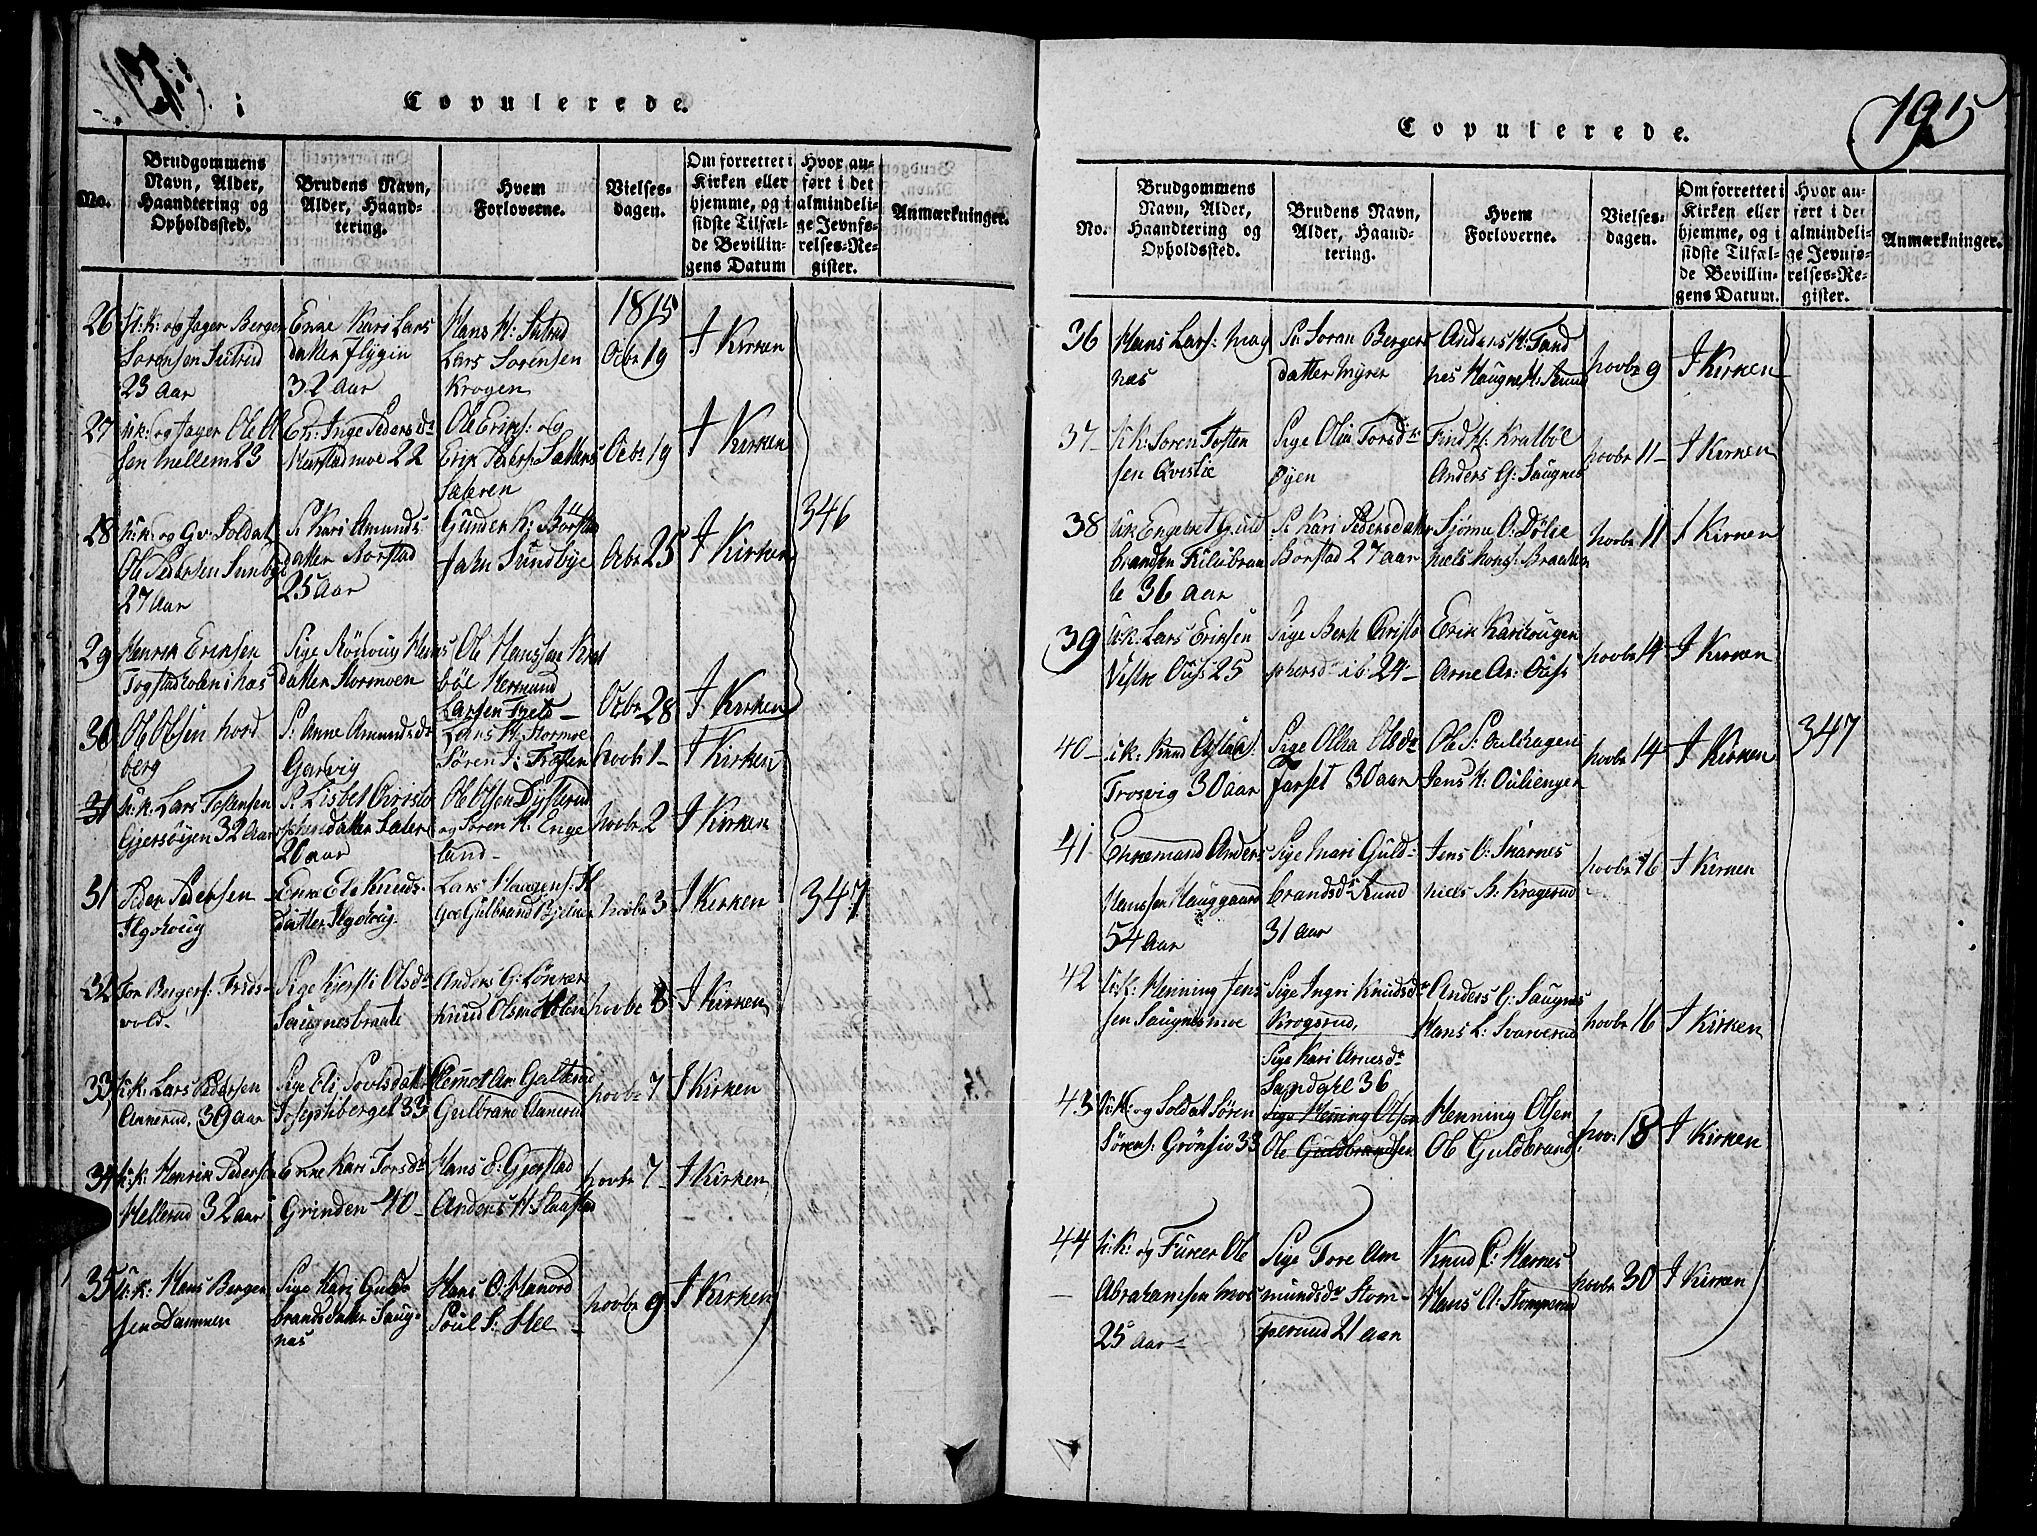 Copulerede.
No.
Brudgommens
Navn, Alder,
Haandtering og
Opholdssted.
Brudens Navn,
Alder, Haand-
tering.
Hvem
Forloverne.
Vielses-
dagen.
Om forrettet i
Kirken eller
hjemme, og i
sidste Tilfæl-
de Bevillin-
gens Datum
Hvor an-
ført i det
almindeli-
ge Jevnfø-
relses-Re-
gister.
Anmærkninger.
26
u: K: og Jager Berger
Sorensen
23 aar
Enke Kari Lars
datter Flygin
32 aar
Hans H:
Lars Sorensen
Krogen
1815
Octbr 19
I Kirken
27
u: k: og Jager Ole Ol
sen mellem 23
Inge Peders dr
Harstadmoe 22
Ole Eriks: og
Erik Peders: Sæters
Sæteren
Octbr 19
I Kirken
28
u: k: og Gv: Soldat
Ole Pedersen Sunbye
27 aar
P: Kari Amunds
datter Norstad
25 aar
Gunder K: Börstad
Sundbye
Octbr 25
I Kirken
346
29
Henrik Eriksen
Togstadkoleni has
Sige Rönnoug Hans
datter Stormoen
Ole Hanssen Krat
böl Hermund
Larsen Fjeld
Octbr 28
I Kirken
30
Ole Olsen nord
berg
P: Anne Amundsdr
Garvig
Lars H: Stormoe
Sören T:
Novbr 1
I Kirken
31
u: k: Lars Tostensen
Gjersöyen 32 aar
P: Lisbet Christo
phersdatter Sæter
26 aar
Ole Olsen Dysterud
og Sören H: Enge
land
Novbr 2
I Kirken
31
Peder Pedersen
Ilgskoug
Enke Eli Knuds
datter Ilgskoug
Lars Haagens:
Gulbrand
Novbr 3
I Kirken
347
32
Tor Bergers: Frids
vold
Sige Kjersti Olsdr
Saugnesbraate
Anders G:
Knud Olsmohlen
Novbr 8
I Kirken
33
u: k: Lars Pedersen
Annerud, 39 aar
Sige Eli Povlsdatter
Josephsberget 33
Clemet Am: Galterud
Gulbrand Aanerud
Novbr 7
I Kirken
34
u: k: Henrik Pedersen
Hellerud 32 aar
Enke Kari Torsdr
Grinden 40
Hans E: Gjerstad
Anders H:
Novbr 7
I Kirken
35
u: k: Hans Berger
sen Dammen
Sige Kari Guld
brandsdatter Saug
nes
Hans O: Hanord
Poul S: Hee
Novbr 9
I Kirken
Copulerede.
195
No.
Brudgommens
Navn, Alder,
Haandtering og
Opholdssted.
Brudens Navn,
Alder, Haand-
tering.
Hvem
Forloverne.
Vielses-
dagen.
Om forrettet i
Kirken eller
hjemme, og i
sidste Tilfæl-
de Bevillin-
gens Datum.
Hvor an-
ført i det
almindeli-
ge Jevnfø-
relses-Re-
gister.
Anmærkninger.
36
Hans Lars: mag
nes
P: Soran Berger
datter myrer
Anders H: Sand
nes Haagen H:
Novbr 9
I Kirken
37
u: K: Soren Tosten
sen Qvislie
Sige Olia Torsdr
Öyen
Find H: Kratböl
Anders G: Saugnes
Novbr 11
I Kirken
38
u: k: Engebret Guld
brandsen Kilebraa
te 36 aar
P: Kari Pedersdatter
Borstad 27 aar
Sjönne O: Dölie
niels hans: Braaten
Novbr 11
I Kirken
39
u: k: Lars Eriksen
Vestre Ouss 25
Sige Berte Christo
phersd ib 24
Erik Karihougen
Arne Ar: Ouss
Novbr 14
I Kirken
40
u: k: Knud
Trosvig 30 aar
Sige Olea Olsdr
farset 30 aar
Ole P: Oulihagen
Jens K: Oulienget
Novbr 14
I Kirken
347
41
Enkemand Anders
Hanssen Hauggaard
54 aar
Sige Mari Guld
brandsdr Krud
31 aar
Jens O: Skarnes
niels A: Krogsrud
Novbr 16
I Kirken
42
u: k: Henning Jens
sen Saugnesmoe
Sige Ingri Knudsdr
Krogsrud,
Anders G: Saugnes
Hans L: Svarverud
Novbr 16
I Kirken
43
u: K: og Soldat Sören
Sörens: Grönsio 33
Sige Kari Arnesdr
Sandahl 36
Sige Henning Olsen
Ole Guldbrandsen
Henning Olsen
Ole Guldbrand
Nov: 18
I Kirken
44
u: K: og Fureer Ole
Abrahamsen mos
25 aar
Sige Tore Am
mundsdr Stom
perud 21 aar
Knud C: Harnes
Hans A: Stomperud
Novbr 30
I Kirken